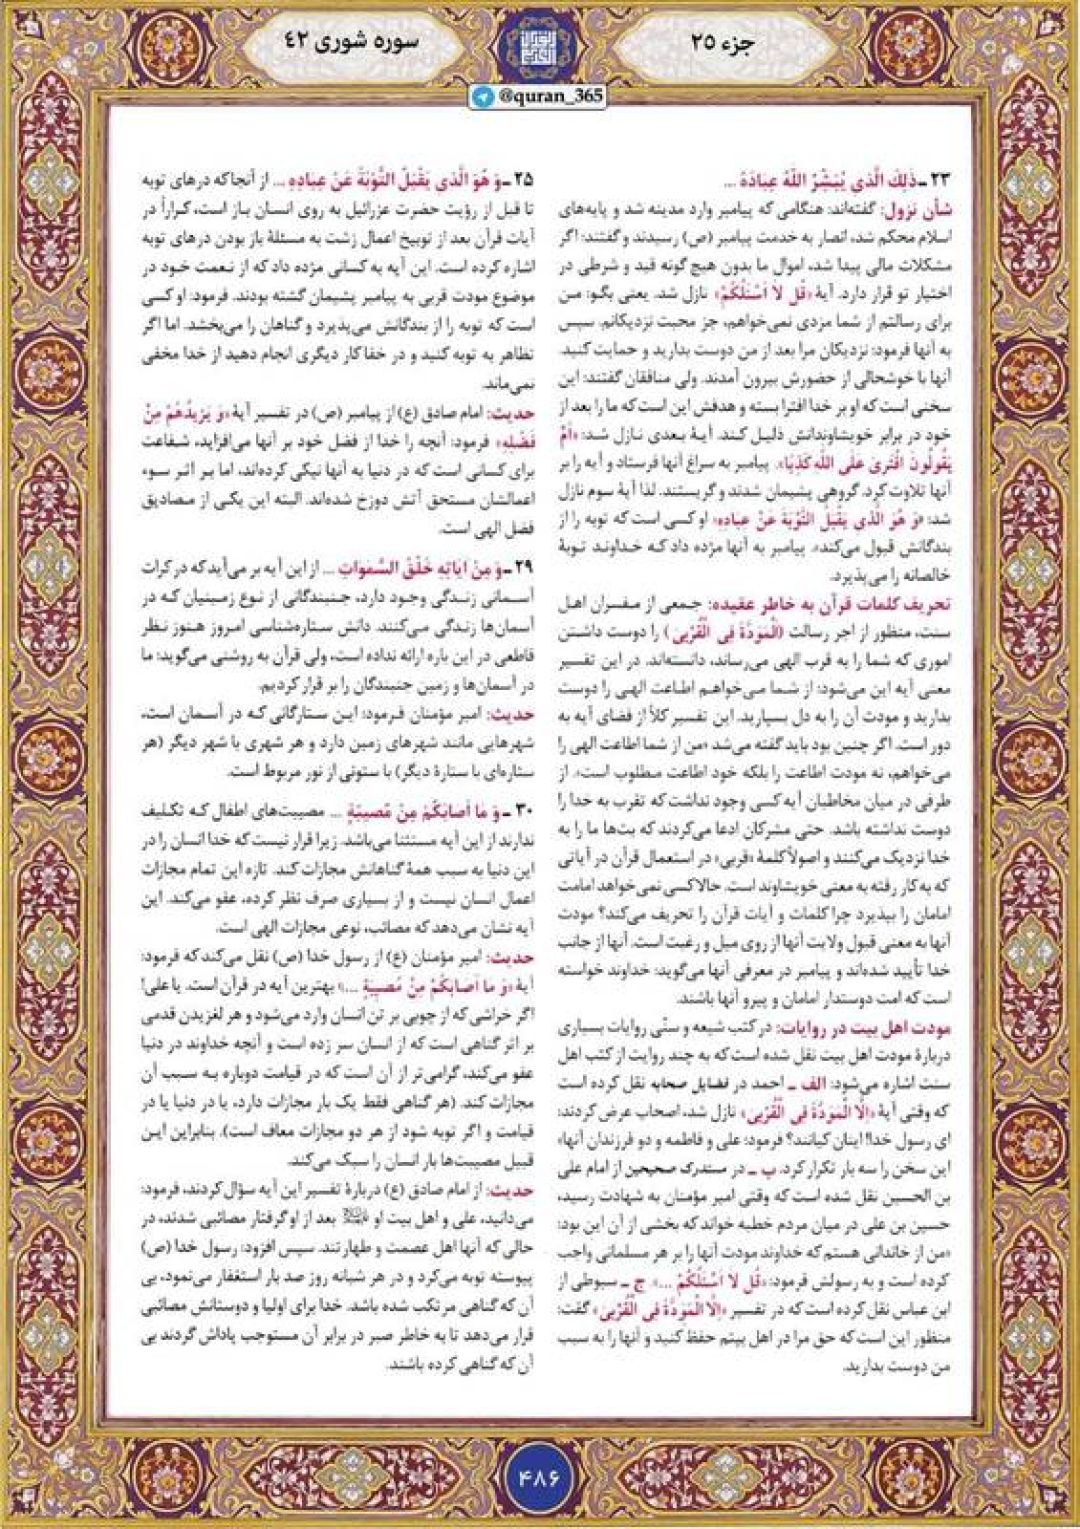 جزء ۲۵
سوره شوری ۴۲
@quran_365
۲۳ ـ ذَلِكَ الَّذی یُبَشِّرُ اللّٰهُ عِبادَهُ ...
شأن نزول: گفته‌اند: هنگامی که پیامبر وارد مدینه شد و پایه‌های
اسلام محکم شد، انصار به خدمت پیامبر (ص) رسیدند و گفتند: اگر
مشکلات مالی پیدا شد، اموال ما بدون هیچ گونه قید و شرطی در
اختیار تو قرار دارد. آیهٔ «قُل لا اَسْئَلُكُمْ» نازل شد. یعنی بگو: من
برای رسالتم از شما مزدی نمی‌خواهم، جز محبت نزدیکانم. سپس
به آنها فرمود: نزدیکان مرا بعد از من دوست بدارید و حمایت کنید.
آنها با خوشحالی از حضورش بیرون آمدند. ولی منافقان گفتند: این
سخنی است که او بر خدا افترا بسته و هدفش این است که ما را بعد از
خود در برابر خویشاوندانش دلیل کند. آیهٔ بعدی نازل شد: «اَمْ
یَقُولُونَ افْتَری عَلَی اللّٰهِ كَذِبًا». پیامبر به سراغ آنها فرستاد و آیه را بر
آنها تلاوت کرد. گروهی پشیمان شدند و گریستند. لذا آیهٔ سوم نازل
شد: «وَ هُوَ الَّذی یَقْبَلُ التَّوْبَةَ عَنْ عِبادِهِ» او کسی است که توبه را از
بندگانش قبول می‌کند». پیامبر به آنها مژده داد که خداوند توبهٔ
خالصانه را می‌پذیرد.
تحریف کلمات قرآن به خاطر عقیده: جمعی از مفسران اهل
سنت، منظور از اجر رسالت (الْمَوَدَّةَ فِی الْقُرْبی) را دوست داشتن
اموری که شما را به قرب الهی می‌رساند، دانسته‌اند. در این تفسیر
معنی آیه این می‌شود: از شما می‌خواهم اطاعت الهی را دوست
بدارید و مودت آن را به دل بسپارید. این تفسیر کلاً از فضای آیه به
دور است. اگر چنین بود باید گفته می‌شد «من از شما اطاعت الهی را
می‌خواهم، نه مودت اطاعت را بلکه خود اطاعت مطلوب است». از
طرفی در میان مخاطبان آیه کسی وجود نداشت که تقرب به خدا را
دوست نداشته باشد. حتی مشرکان ادعا می‌کردند که بت‌ها ما را به
خدا نزدیک می‌کنند و اصولاً کلمهٔ «قربی» در استعمال قرآن در آیاتی
که به کار رفته به معنی خویشاوند است. حالا کسی نمی‌خواهد امامت
امامان را بپذیرد چرا کلمات و آیات قرآن را تحریف می‌کند؟ مودت
آنها به معنی قبول ولایت آنها از روی میل و رغبت است. آنها از جانب
خدا تأیید شده‌اند و پیامبر در معرفی آنها می‌گوید: خداوند خواسته
است که امت دوستدار امامان و پیرو آنها باشند.
مودت اهل بیت در روایات: در کتب شیعه و سنّی روایات بسیاری
دربارهٔ مودت اهل بیت نقل شده است که به چند روایت از کتب اهل
سنت اشاره می‌شود: الف ـ احمد در فضایل صحابه نقل کرده است
که وقتی آیهٔ «اِلَّا الْمَوَدَّةَ فِی الْقُرْبی» نازل شد، اصحاب عرض کردند:
ای رسول خدا! اینان کیانند؟ فرمود: علی و فاطمه و دو فرزندان آنها»
این سخن را سه بار تکرار کرد. ب ـ در مستدرک صحیحین از امام علی
بن الحسین نقل شده است که وقتی امیر مؤمنان به شهادت رسید،
حسین بن علی در میان مردم خطبه خواند که بخشی از آن این بود:
«من از خاندانی هستم که خداوند مودت آنها را بر هر مسلمانی واجب
کرده است و به رسولش فرمود: «قُل لا اَسْئَلُكُمْ ...». ج ـ سیوطی از
ابن عباس نقل کرده است که در تفسیر «اِلَّا الْمَوَدَّةَ فِی الْقُرْبی» گفت:
منظور این است که حق مرا در اهل بیتم حفظ کنید و آنها را به سبب
من دوست بدارید.
۲۵ ـ وَ هُوَ الَّذی یَقْبَلُ التَّوْبَةَ عَنْ عِبادِهِ ... از آنجا که درهای توبه
تا قبل از رؤیت حضرت عزرائیل به روی انسان باز است، کراراً در
آیات قرآن بعد از توبیخ اعمال زشت به مسئلهٔ باز بودن درهای توبه
اشاره کرده است. این آیه به کسانی مژده داد که از نعمت خود در
موضوع مودت قربی به پیامبر پشیمان گشته بودند. فرمود: او کسی
است که توبه را از بندگانش می‌پذیرد و گناهان را می‌بخشد. اما اگر
تظاهر به توبه کنید و در خفا کار دیگری انجام دهید از خدا مخفی
نمی‌ماند.
حدیث: امام صادق (ع) از پیامبر (ص) در تفسیر آیهٔ «وَ یَزیدُهُمْ مِنْ
فَضْلِهِ» فرمود: آنچه را خدا از فضل خود بر آنها می‌افزاید، شفاعت
برای کسانی است که در دنیا به آنها نیکی کرده‌اند، اما بر اثر سوء
اعمالشان مستحق آتش دوزخ شده‌اند. البته این یکی از مصادیق
فضل الهی است.
۲۹ ـ وَ مِنْ ایاتِهِ خَلْقُ السَّمواتِ ... از این آیه بر می‌آید که در کرات
آسمانی زندگی وجود دارد، جنبندگانی از نوع زمینیان که در
آسمان‌ها زندگی می‌کنند. دانش ستاره‌شناسی امروز هنوز نظر
قاطعی در این باره ارائه نداده است، ولی قرآن به روشنی می‌گوید: ما
در آسمان‌ها و زمین جنبندگان را بر قرار کردیم.
حدیث: امیر مؤمنان فرمود: این ستارگانی که در آسمان است،
شهرهایی مانند شهرهای زمین دارد و هر شهری با شهر دیگر (هر
ستاره‌ای با ستارهٔ دیگر) با ستونی از نور مربوط است.
۳۰ ـ وَ ما اَصابَكُمْ مِنْ مُصیبَةٍ ... مصیبت‌های اطفال که تکلیف
ندارند از این آیه مستثنا می‌باشد. زیرا قرار نیست که خدا انسان را در
این دنیا به سبب همهٔ گناهانش مجازات کند. تازه این تمام مجازات
اعمال انسان نیست و از بسیاری صرف نظر کرده، عفو می‌کند. این
آیه نشان می‌دهد که مصائب، نوعی مجازات الهی است.
حدیث: امیر مؤمنان (ع) از رسول خدا (ص) نقل می‌کند که فرمود:
آیهٔ «وَ ما اَصابَكُمْ مِنْ مُصیبَةٍ ...» بهترین آیه در قرآن است. یا علی!
اگر خراشی که از چوبی بر تن انسان وارد می‌شود و هر لغزیدن قدمی
بر اثر گناهی است که از انسان سر زده است و آنچه خداوند در دنیا
عفو می‌کند، گرامی‌تر از آن است که در قیامت دوباره به سبب آن
مجازات کند. (هر گناهی فقط یک بار مجازات دارد، یا در دنیا یا در
قیامت و اگر توبه شود از هر دو مجازات معاف است). بنابراین این
قبیل مصیبت‌ها بار انسان را سبک می‌کند.
حدیث: از امام صادق (ع) دربارهٔ تفسیر این آیه سؤال کردند، فرمود:
می‌دانید، علی و اهل بیت او بعد از او گرفتار مصائبی شدند، در
حالی که آنها اهل عصمت و طهارتند. سپس افزود: رسول خدا (ص)
پیوسته توبه می‌کرد و در هر شبانه روز صد بار استغفار می‌نمود، بی
آن که گناهی مرتکب شده باشد. خدا برای اولیا و دوستانش مصائبی
قرار می‌دهد تا به خاطر صبر در برابر آن مستوجب پاداش گردند بی
آن که گناهی کرده باشند.
۴۸۶